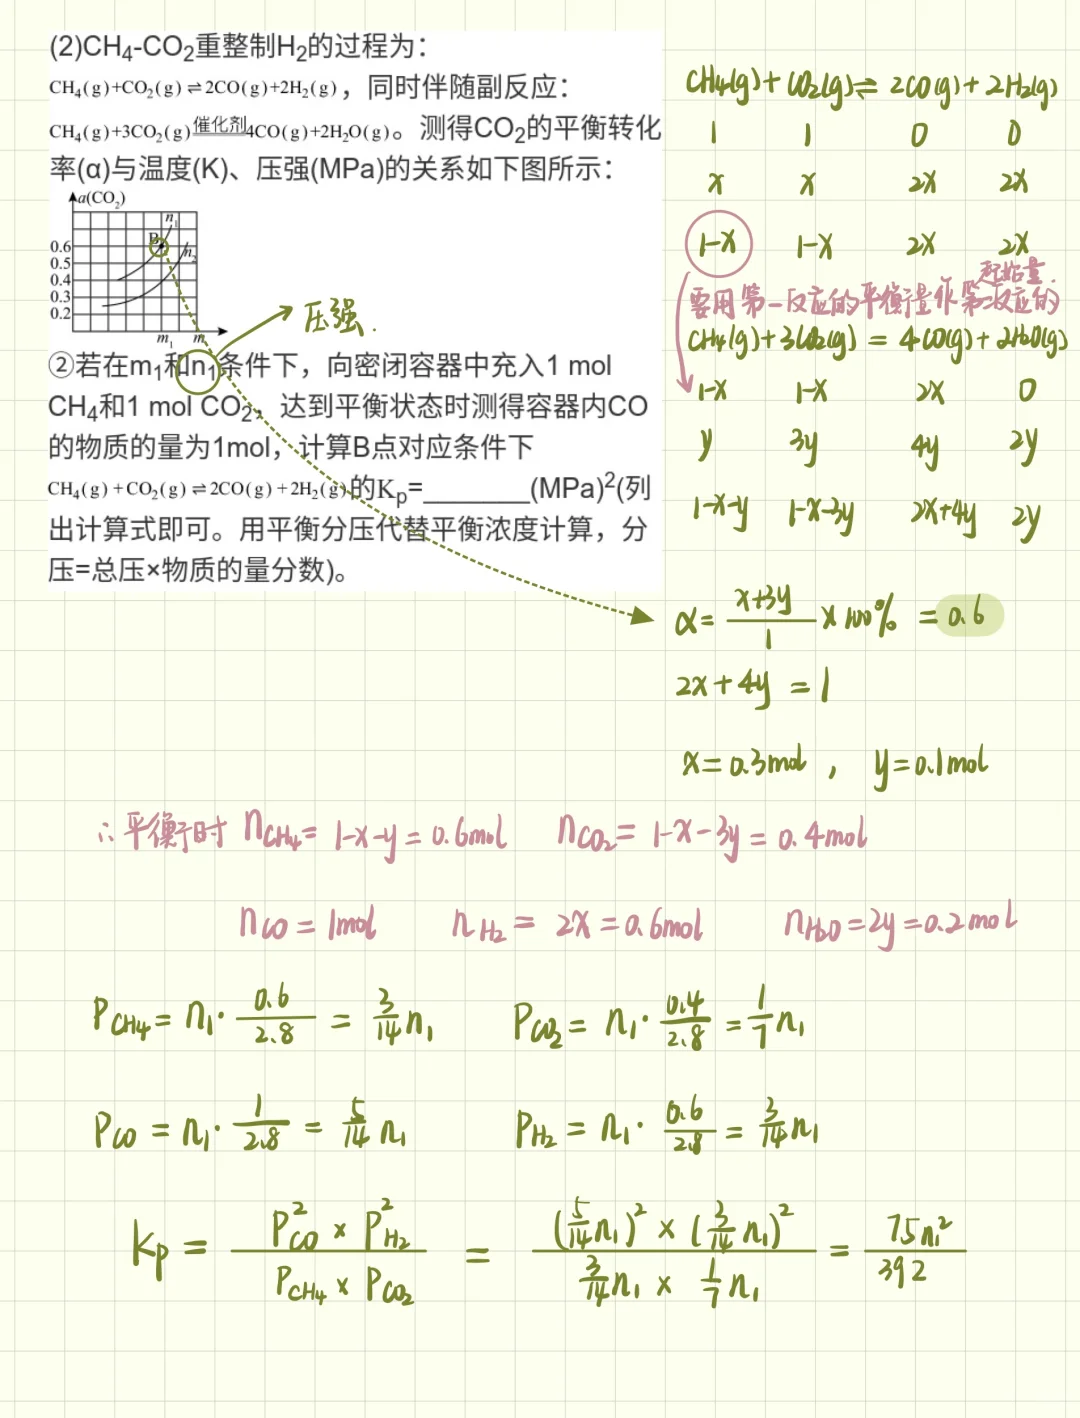 (2)CH₄-CO₂重整制H₂的过程为：
CH₄(g)+CO₂(g)⇌2CO(g)+2H₂(g)，同时伴随副反应：
CH₄(g)+3CO₂(g)催化剂4CO(g)+2H₂O(g)。测得CO₂的平衡转化
率(α)与温度(K)、压强(MPa)的关系如下图所示：
a(CO₂)
n₁
B
n₂
0.6
0.5
0.4
0.3
0.2
m₁ m
压强.
②若在m₁和n₁条件下，向密闭容器中充入1 mol
CH₄和1 mol CO₂，达到平衡状态时测得容器内CO
的物质的量为1mol，计算B点对应条件下
CH₄(g)+CO₂(g)⇌2CO(g)+2H₂(g)的Kp=_______(MPa)²(列
出计算式即可。用平衡分压代替平衡浓度计算，分
压=总压×物质的量分数)。
CH₄(g)+CO₂(g)⇌2CO(g)+2H₂(g)
1 1 0 0
x x 2x 2x
1-x 1-x 2x 2x
要用第一反应的平衡量作第二反应的起始量
CH₄(g)+3CO₂(g)=4CO(g)+2H₂O(g)
1-x 1-x 2x 0
y 3y 4y 2y
1-x-y 1-x-3y 2x+4y 2y
α=(x+3y)/1×100%=0.6
2x+4y=1
x=0.3mol，y=0.1mol
∴平衡时 nCH₄=1-x-y=0.6mol nCO₂=1-x-3y=0.4mol
nCO=1mol nH₂=2x=0.6mol nH₂O=2y=0.2mol
PCH₄=n₁·0.6/2.8=3/14n₁ PCO₂=n₁·0.4/2.8=1/7n₁
PCO=n₁·1/2.8=5/14n₁ PH₂=n₁·0.6/2.8=3/14n₁
Kp=(P²CO×P²H₂)/(PCH₄×PCO₂)=((5/14n₁)²×(3/14n₁)²)/(3/14n₁×1/7n₁)=75n₁²/392